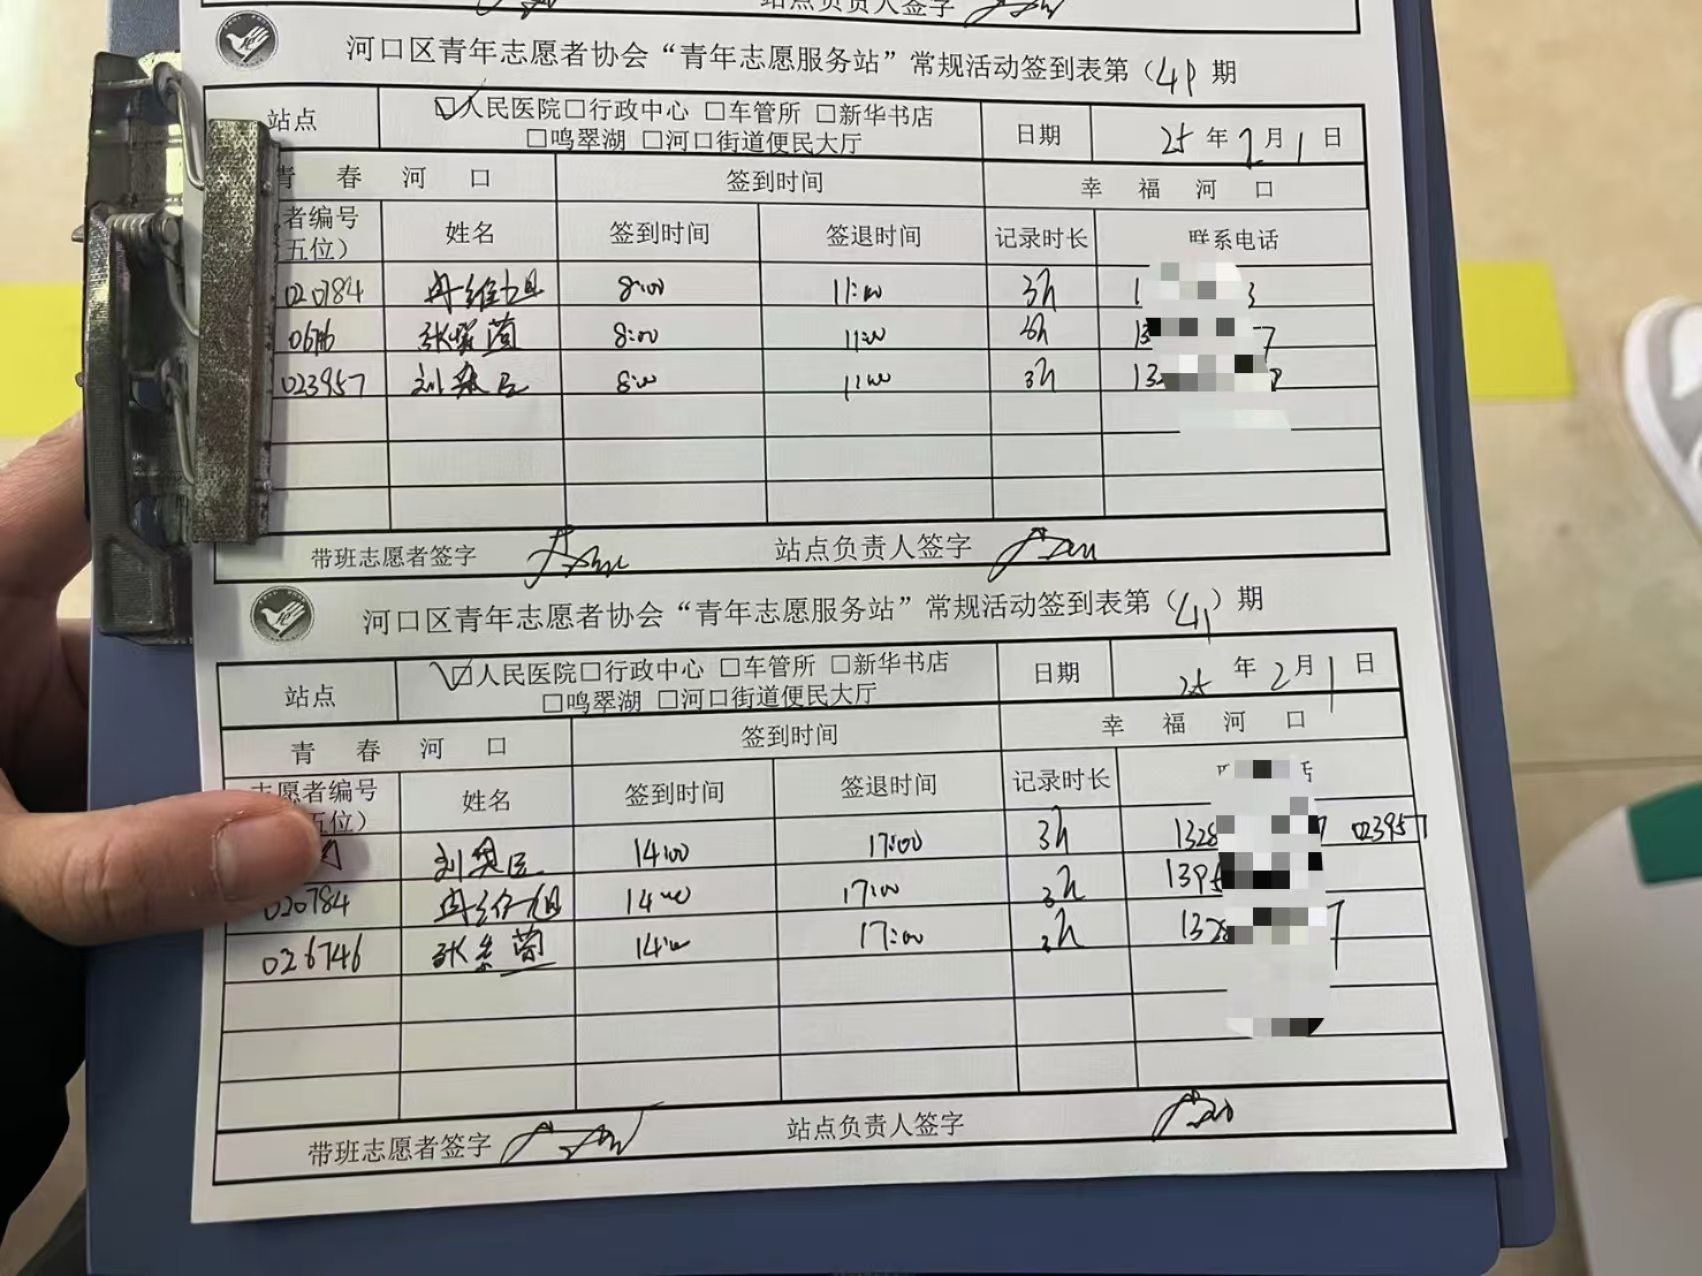 站点负责人签字
河口区青年志愿者协会“青年志愿服务站”常规活动签到表第（41）期
站点 ☑人民医院□行政中心 □车管所 □新华书店 日期 25年2月1日
□鸣翠湖 □河口街道便民大厅
青春河口 签到时间 幸福河口
者编号 姓名 签到时间 签退时间 记录时长 联系电话
五位）
020784 8:00 11:00 3h 1 3
8:00 11:00 3h 13 7
023957 8:00 11:00 3h 13
带班志愿者签字 站点负责人签字
河口区青年志愿者协会“青年志愿服务站”常规活动签到表第（41）期
站点 ☑人民医院□行政中心 □车管所 □新华书店 日期 25年2月1日
□鸣翠湖 □河口街道便民大厅
青春河口 签到时间 幸福河口
志愿者编号 姓名 签到时间 签退时间 记录时长
五位）
14:00 17:00 3h 1328 7 023957
020784 14:00 17:00 3h 139
026746 14:00 17:00 3h 1328 7
带班志愿者签字 站点负责人签字